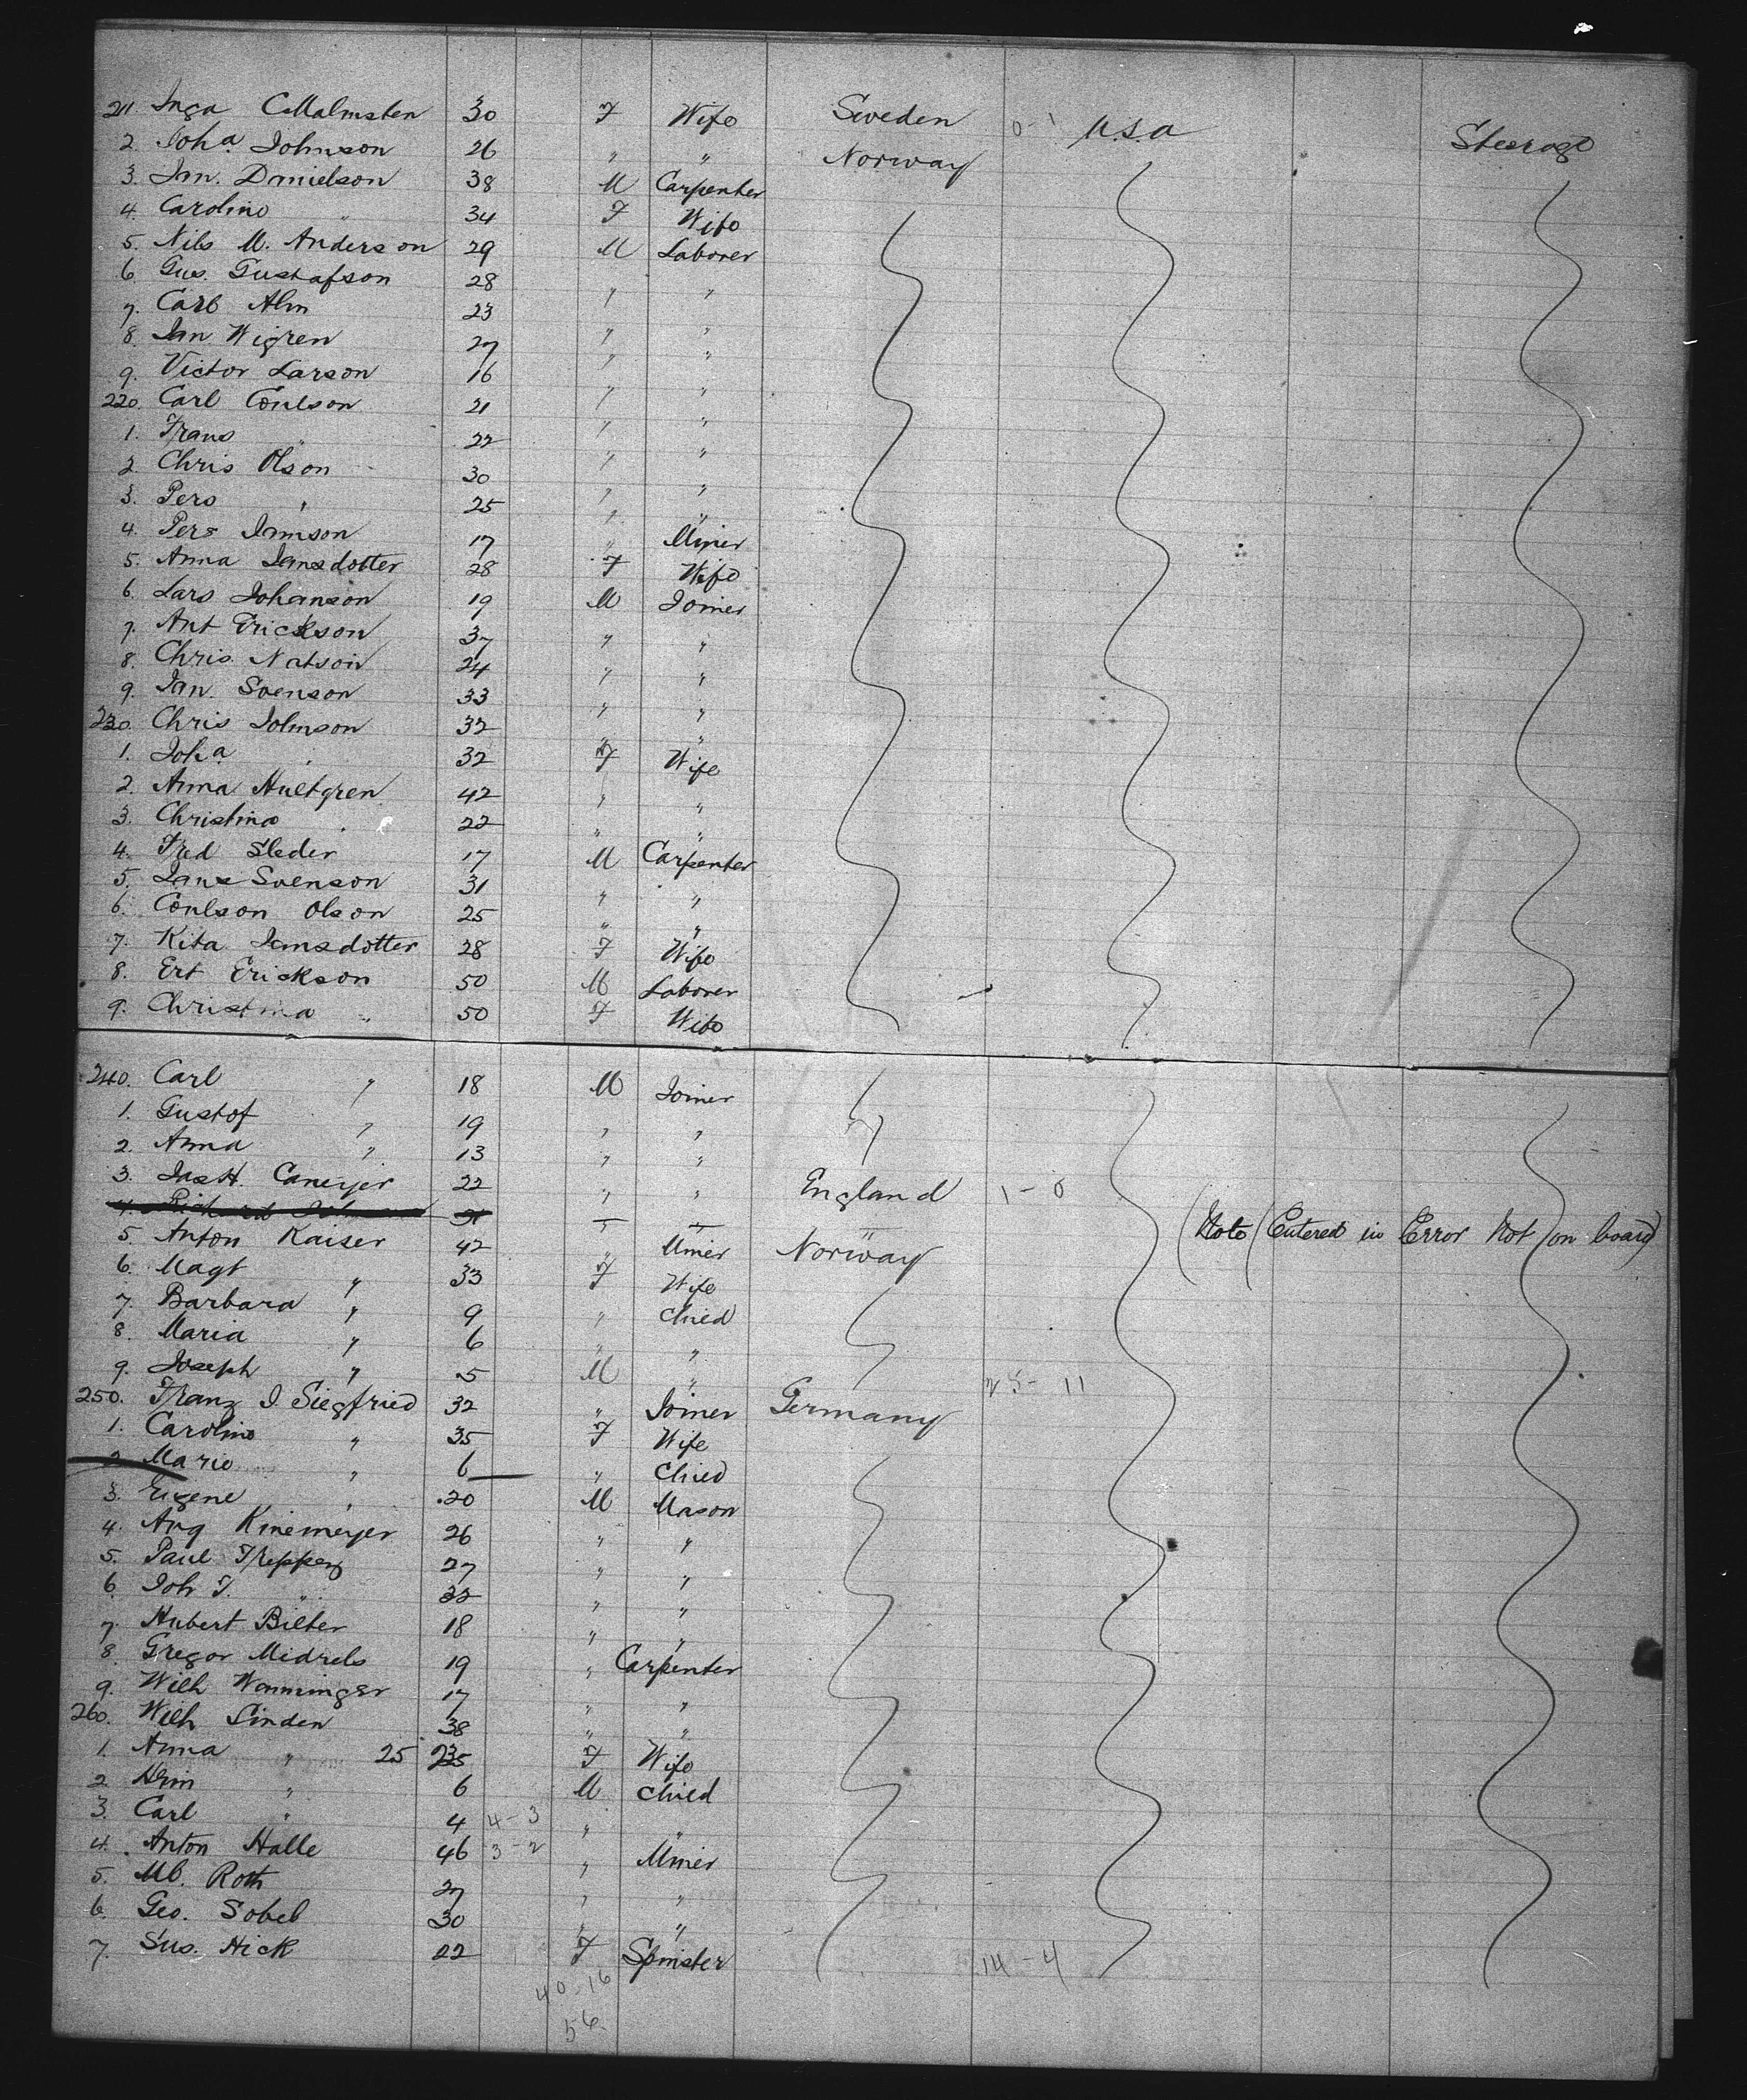 211 Inga C Malmsten 30 F Wife Sweden 0-1 U.S.A Steerage
2. Joha Johnson 26 " " Norway
3. Jan. Danielson 38 M Carpenter
4. Caroline " 34 F Wife
5. Nils M. Anderson 29 M Laborer
6 Gus. Gustafson 28 " "
7. Carl Alm 23 " "
8. Jan Wigren 27 " "
9. Victor Larson 16 " "
220. Carl Coulson 21 " "
1. Frans " 22 " "
2. Chris Olson 30 " "
3. Pers " 25 " "
4. Pers Jamson 17 " Miner
5. Anna Jansdotter 28 F Wife
6. Lars Johanson 19 M Joiner
7. Ant Erickson 37 " "
8. Chris. Natson 24 " "
9. Jan. Svenson 33 " "
230. Chris Johnson 32 " "
1. Joha " 32 F Wife
2. Anna Hultgren 42 " "
3. Christina " 22 " "
4. Fred Sleder 17 M Carpenter
5. Jans Svenson 31 " "
6. Coulson Olson 25 " "
7. Kita Jansdotter 28 F Wife
8. Ert Erickson 50 M Laborer
9. Christina " 50 F Wife
240. Carl " 18 M Joiner
1. Gustof " 19 " "
2. Anna " 13 " "
3. Jas H. Cameyer 22 " " England 1-0
4. Richard 31 " " " (Note (Entered in Error Not on board)
5. Anton Kaiser 42 " Miner Norway
6. Magt " 33 F Wife
7. Barbara " 9 " Child
8. Maria " 6 " "
9. Joseph " 5 M " 25-11
250. Franz J. Siegfried 32 " Joiner Germany
1. Caroline " 35 F Wife
2 Marie " 6 " Child
3. Eugene " 20 M Mason
4. Aug Kinemeyer 26 " "
5. Paul Treppez 27 " "
6. Joh T. " 32 " "
7. Hubert Bilter 18 " "
8. Gregor Midrels 19 " Carpenter
9. Wilh Wanninger 17 " "
260. Wilh Linden 38 " "
1. Anna " 25 235 F Wife
2 " 6 M Child
3. Carl " 4 4-3 " "
4. Anton Halle 46 3-2 " Miner
5. Mb. Roth 27 " "
6. Geo. Sobel 30 " "
7. Sus. Hick 22 F Spinster 14-4
40-16
56